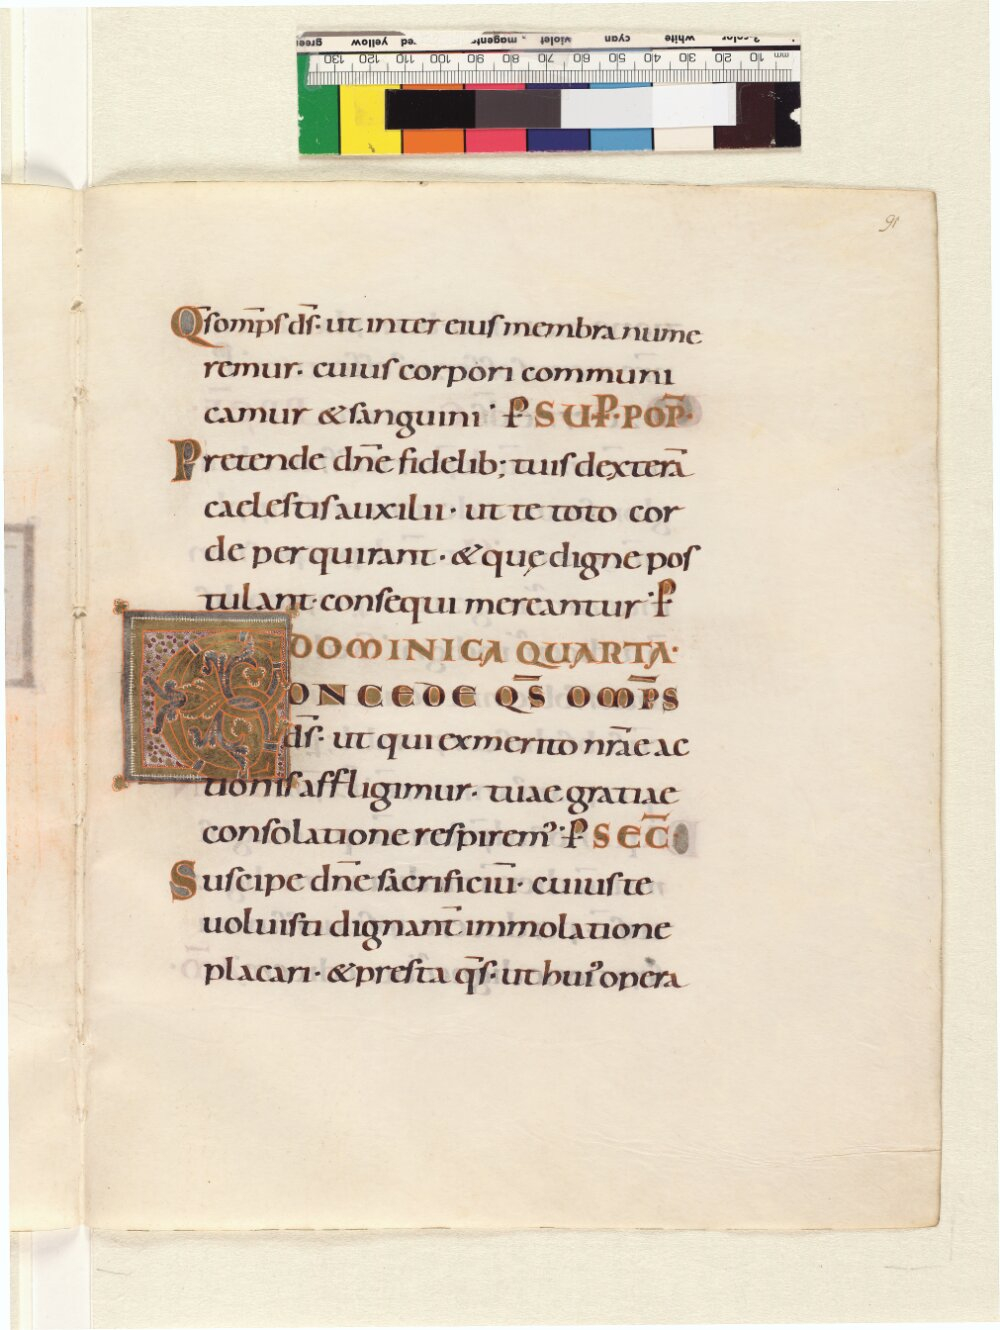 green yellow red magenta violet cyan white 3-color
mm 10 20 30 40 50 60 70 80 90 100 110 120 130
91
Qs om̅ps d̅s· ut inter eius membra nume
remur· cuius corpori communi
camur &sanguini·ꝑ SUꝑ·POP̅·
Pretende dn̅e fidelib; tuis dexterā
caelestis auxilii· ut te toto cor
de perquirant· &quę digne pos
tulant· consequi mereantur·ꝑ
DOMINICA QUARTA·
CONCEDE QS̅ OMP̅S
d̅s· ut qui ex merito nr̅ae ac
tionis affligimur· tuae gratiae
consolatione respirem᾽·ꝑ SEC̅
Suscipe dn̅e sacrificiū· cuius te
uoluisti dignant̅ immolatione
placari· &presta q̅s· ut hui᾽ opera